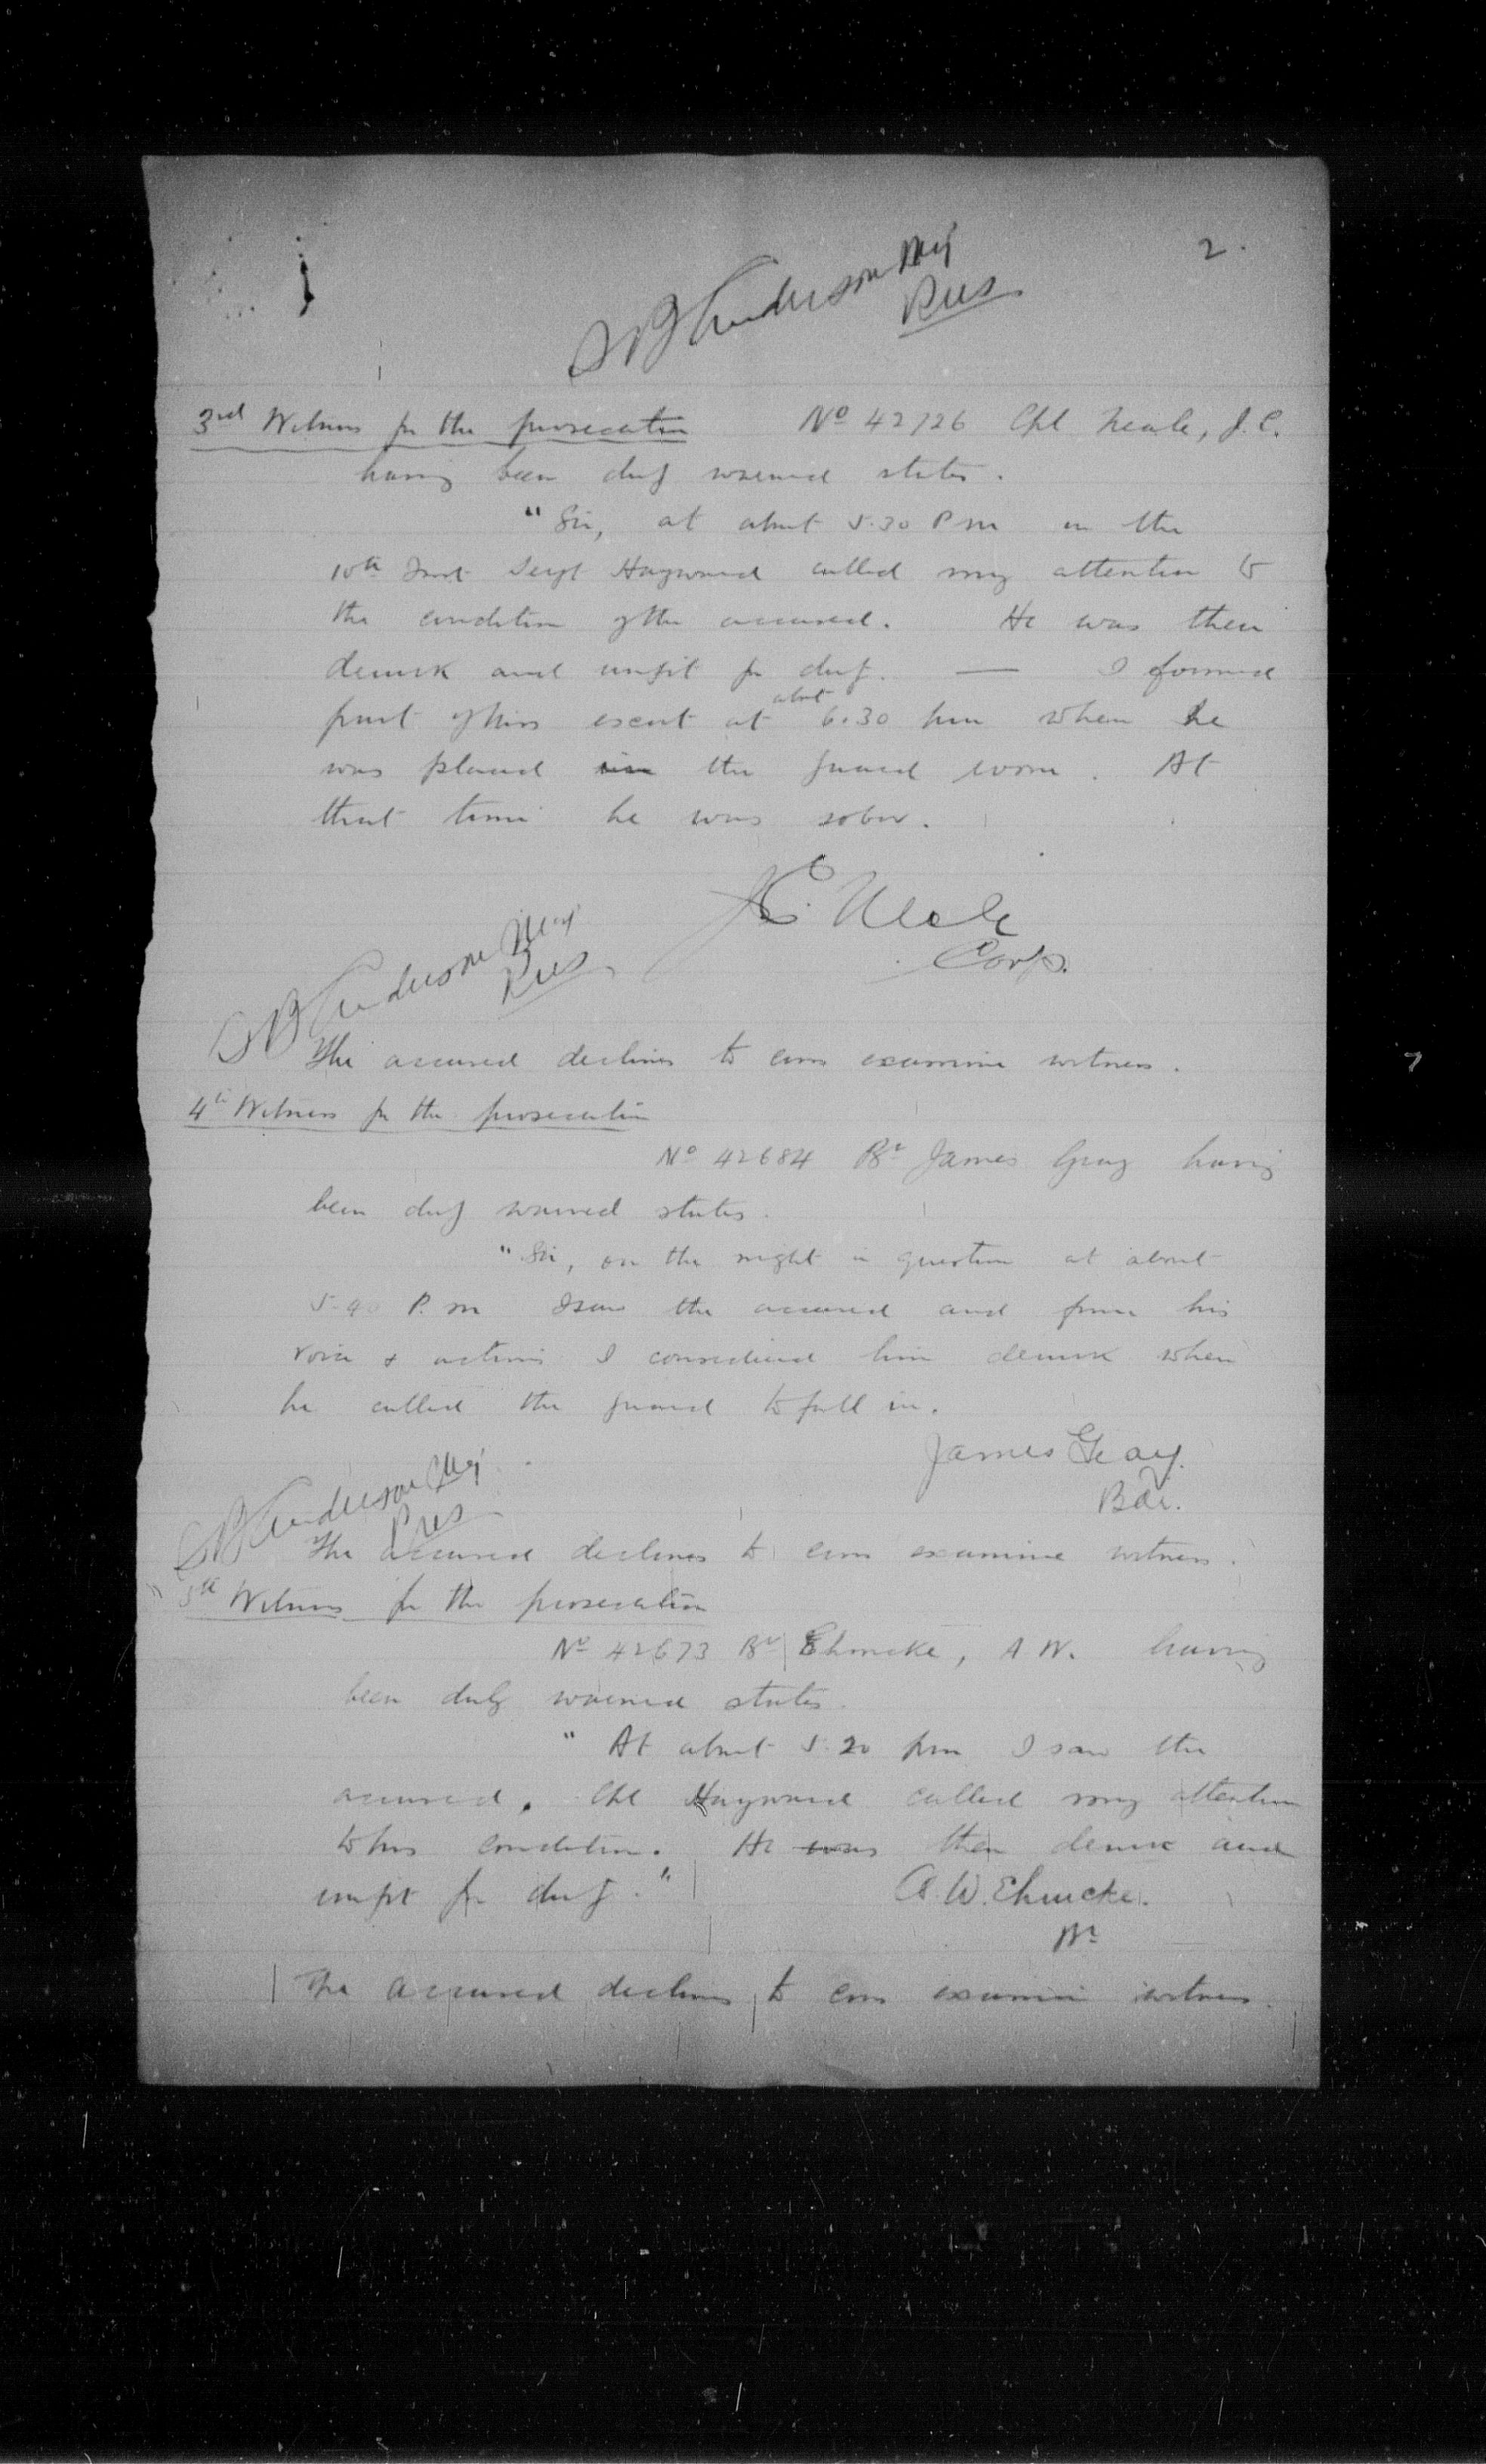 2.
S B Anderson Maj
Pres
3rd Witness for the prosecution No 42726 Cpl Neale, J.C.
having been duly warned states.
"Sir, at about 5.30 P m on the
10th Inst Sergt Hayward called my attention to
the condition of the accused. He was then
drunk and unfit for duty. — I formed
part of his escort at about 6.30 pm when he
was placed in the guard room. At
that time he was sober.
J C. Neale
Corp.
S B Anderson Maj
Pres
The accused declines to cross examine witness.
4th Witness for the prosecution
No 42684 Br James Gray having
been duly warned states.
"Sir, on the night in question at about
5-40 P.m I saw the accused and from his
voice & actions I considered him drunk when
he called the guard to fall in.
James Gray.
Bdr.
S B Anderson Maj
Pres
The accused declines to cross examine witness.
5th Witness for the prosecution
No 42673 Br Ehmcke, A W. having
been duly warned states.
" At about 5.20 pm I saw the
accused. Cpl Hayward called my attention
to his condition. He was then drunk and
unfit for duty."
A. W. Ehmcke.
Br
The accused declines to cross examine witness.